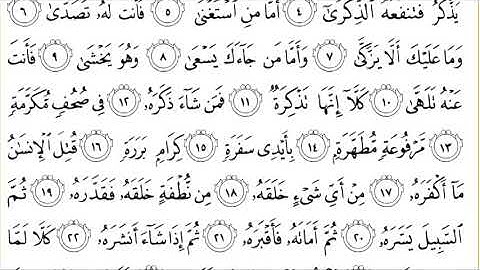 يَذَّكَّرُ فَتَنفَعَهُ ٱلذِّكْرَىٰٓ ٤ أَمَّا مَنِ ٱسْتَغْنَىٰ ٥ فَأَنتَ لَهُۥ تَصَدَّىٰ ٦
وَمَا عَلَيْكَ أَلَّا يَزَّكَّىٰ ٧ وَأَمَّا مَن جَآءَكَ يَسْعَىٰ ٨ وَهُوَ يَخْشَىٰ ٩ فَأَنتَ
عَنْهُ تَلَهَّىٰ ١٠ كَلَّآ إِنَّهَا تَذْكِرَةٌ ١١ فَمَن شَآءَ ذَكَرَهُۥ ١٢ فِى صُحُفٍ مُّكَرَّمَةٍ
١٣ مَّرْفُوعَةٍ مُّطَهَّرَةٍۭ ١٤ بِأَيْدِى سَفَرَةٍ ١٥ كِرَامٍۭ بَرَرَةٍ ١٦ قُتِلَ ٱلْإِنسَٰنُ
مَآ أَكْفَرَهُۥ ١٧ مِنْ أَىِّ شَىْءٍ خَلَقَهُۥ ١٨ مِن نُّطْفَةٍ خَلَقَهُۥ فَقَدَّرَهُۥ ١٩ ثُمَّ
ٱلسَّبِيلَ يَسَّرَهُۥ ٢٠ ثُمَّ أَمَاتَهُۥ فَأَقْبَرَهُۥ ٢١ ثُمَّ إِذَا شَآءَ أَنشَرَهُۥ ٢٢ كَلَّا لَمَّا